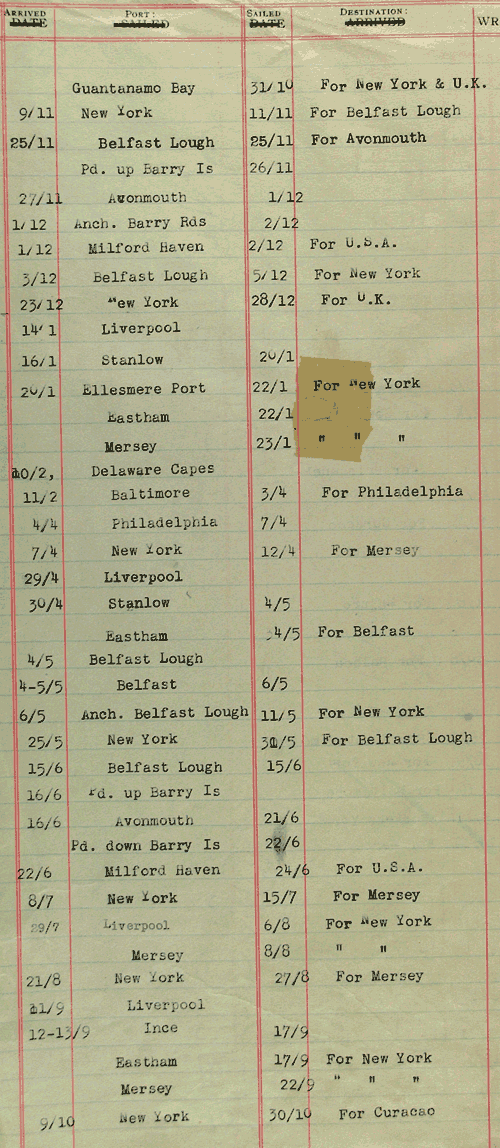 ARRIVED PORT: SAILED DESTINATION:
DATE SAILED DATE ARRIVED WR
Guantanamo Bay 31/10 For New York & U.K.
9/11 New York 11/11 For Belfast Lough
25/11 Belfast Lough 25/11 For Avonmouth
Pd. up Barry Is 26/11
27/11 Avonmouth 1/12
1/12 Anch. Barry Rds 2/12
1/12 Milford Haven 2/12 For U.S.A.
3/12 Belfast Lough 5/12 For New York
23/12 New York 28/12 For U.K.
14/1 Liverpool
16/1 Stanlow 20/1
20/1 Ellesmere Port 22/1 For New York
Eastham 22/1
Mersey 23/1 " " "
10/2, Delaware Capes
11/2 Baltimore 3/4 For Philadelphia
4/4 Philadelphia 7/4
7/4 New York 12/4 For Mersey
29/4 Liverpool
30/4 Stanlow 4/5
Eastham 4/5 For Belfast
4/5 Belfast Lough
4-5/5 Belfast 6/5
6/5 Anch. Belfast Lough 11/5 For New York
25/5 New York 31/5 For Belfast Lough
15/6 Belfast Lough 15/6
16/6 Pd. up Barry Is
16/6 Avonmouth 21/6
Pd. down Barry Is 22/6
22/6 Milford Haven 24/6 For U.S.A.
8/7 New York 15/7 For Mersey
29/7 Liverpool 6/8 For New York
Mersey 8/8 " "
21/8 New York 27/8 For Mersey
11/9 Liverpool
12-13/9 Ince 17/9
Eastham 17/9 For New York
Mersey 22/9 " " "
9/10 New York 30/10 For Curacao